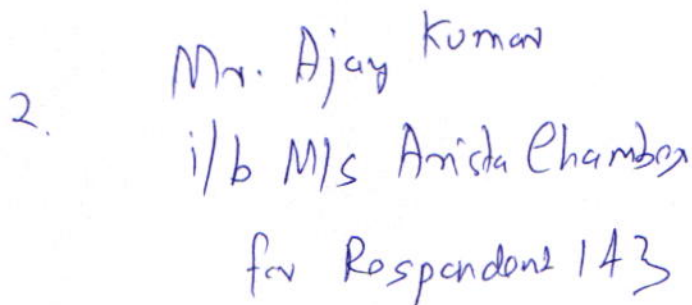 2. Mr. Ajay Kumar
i/b M/s Arista Chambers
for Respondent 1 & 3